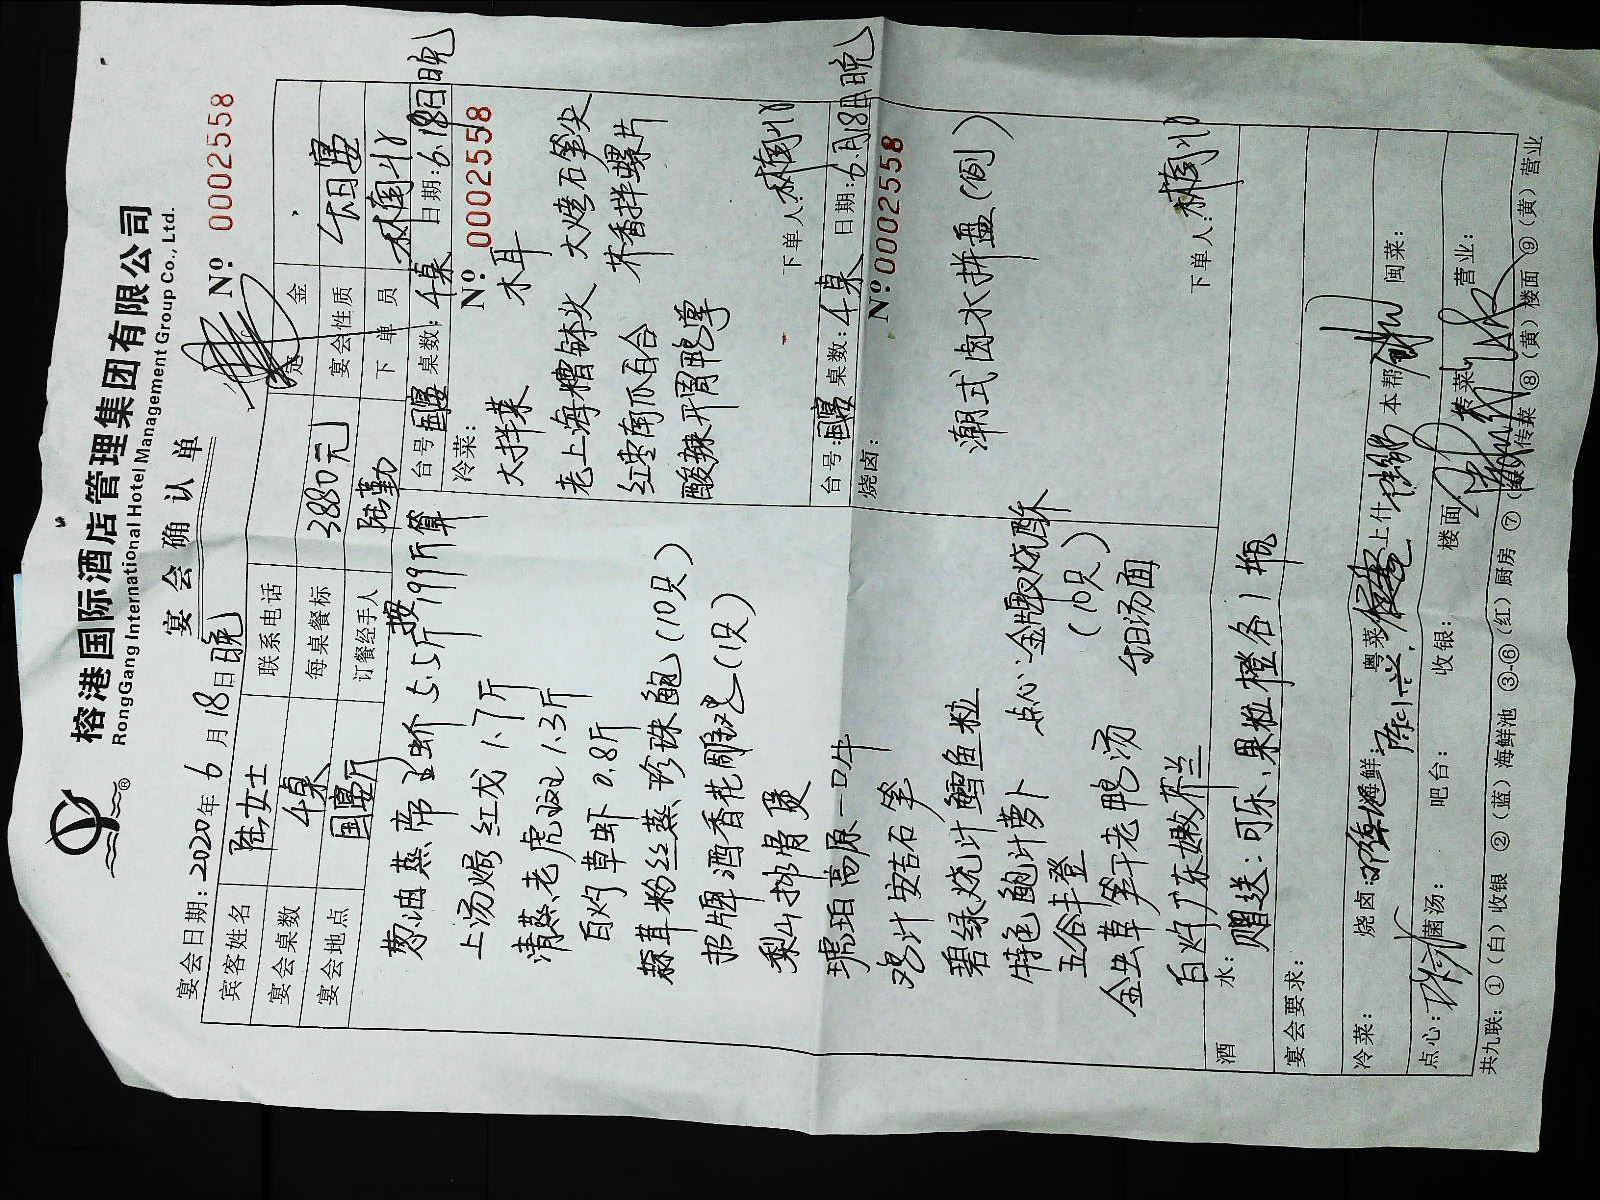 榕港国际酒店管理集团有限公司
RongGang International Hotel Management Group Co., Ltd.
®
宴会确认单
宴会日期：2020年6月18日晚
Nº 0002558
宾客姓名 陆女士 联系电话 定金
宴会桌数 4桌 每桌餐标 3880元 宴会性质
宴会地点 国宴厅 订餐经手人 陆勤 下单员
葱油蒸帝王蚧 5.5斤 按199斤算
上汤焗红龙 1.7斤
清蒸老虎斑 1.3斤
白灼草虾 0.8斤
蒜茸粉丝蒸珍珠鲍（10只）
招牌酒香花雕（1只）
梨山排骨煲
琥珀高原一口牛
鸡汁安吉石笋
碧绿烧汁鳕鱼粒
特色鲍汁萝卜
五谷丰登
金虫草笋干老鸭汤
白灼广东嫩芥兰
点心：金牌叉烧酥
（10只）
汤面
台号：国宴 桌数：4桌 日期：6.18日晚
冷菜： Nº 0002558
大拌菜 木耳
老上海糟钵头 大烤石笋尖
红枣南瓜百合 芥香拌螺片
酸辣开胃鸭掌
下单人：
台号：国宴 桌数：4桌 日期：6月18日晚
烧卤： Nº 0002558
潮式卤水拼盘（例）
下单人：
酒水： 赠送：可乐、果粒橙各1瓶
宴会要求：
冷菜： 烧卤： 海鲜： 粤菜： 上什： 本帮： 闽菜：
点心： 菌汤： 吧台： 收银： 楼面： 传菜： 营业：
共九联：①（白）收银 ②（蓝）海鲜池 ③-⑥（红）厨房 ⑦（绿）传菜 ⑧（黄）楼面 ⑨（黄）营业